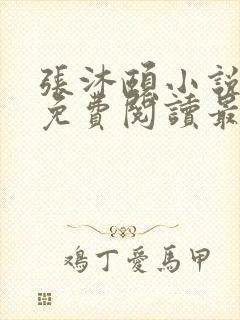 張沐頤小說
免費閱讀最
鴻丁愛馬甲